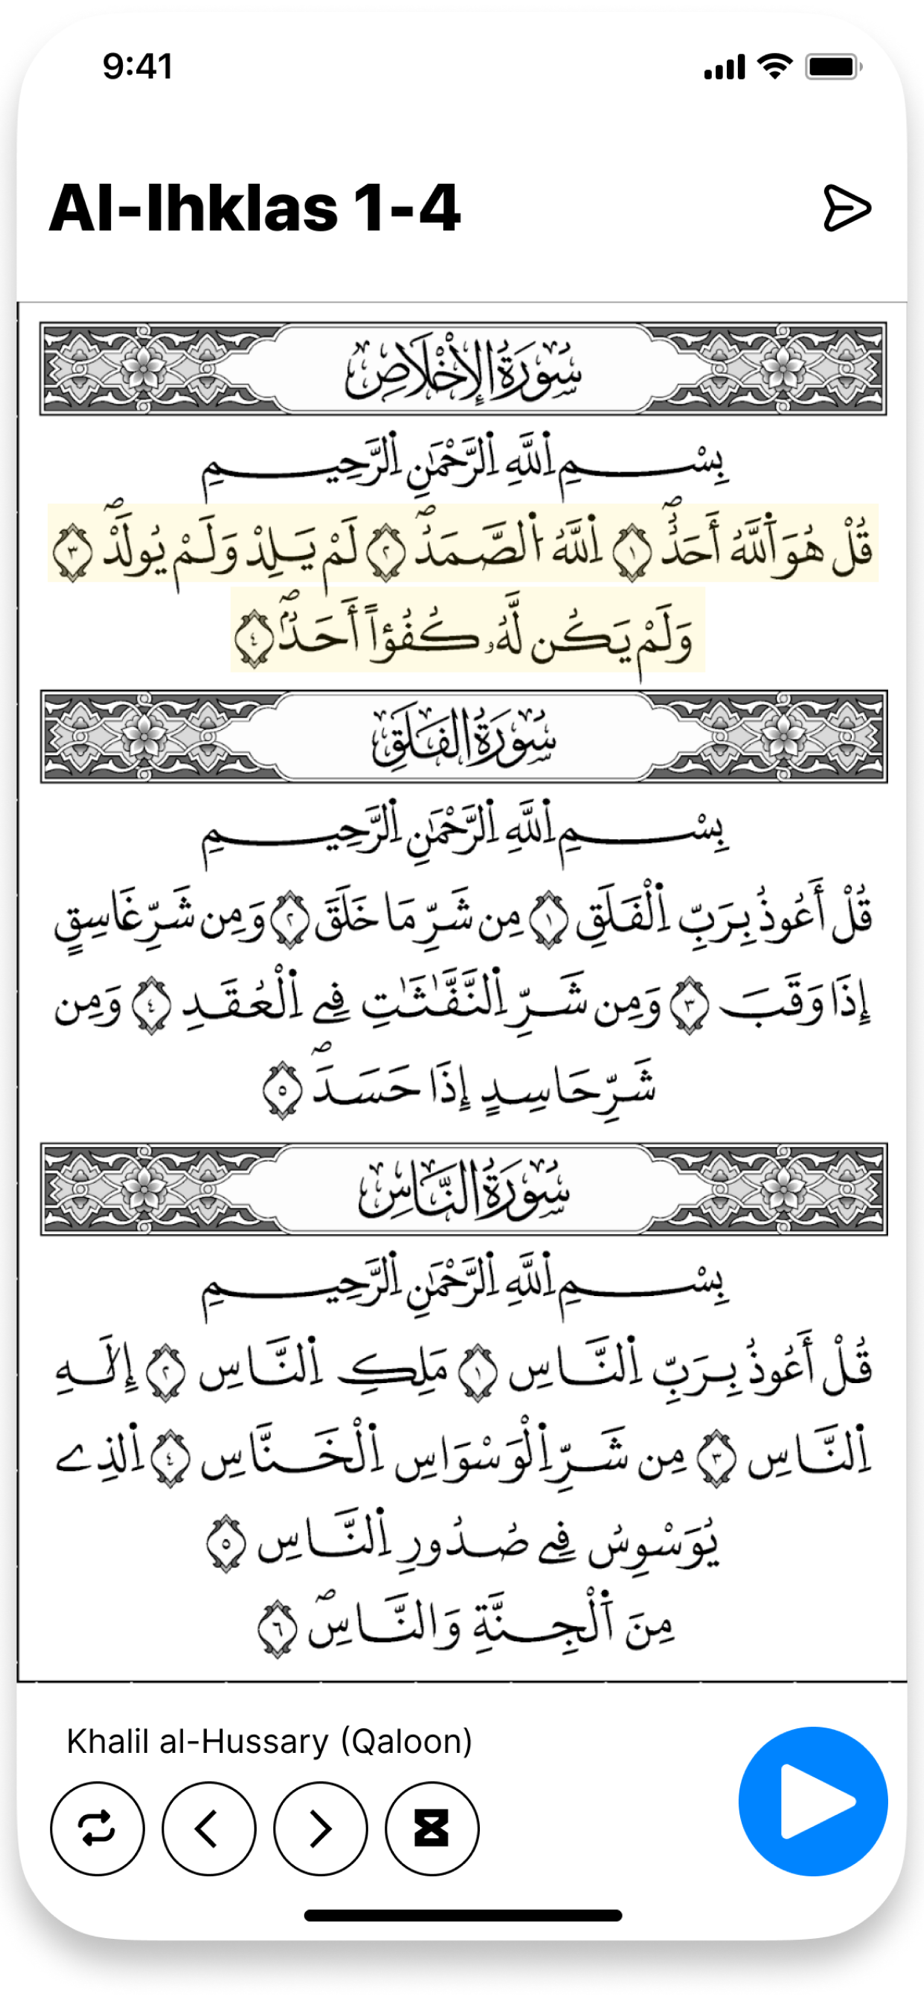 9:41
Al-Ihklas 1-4
سُورَةُ الإِخْلَاصِ
بِسْمِ اِ۬للَّهِ اِ۬لرَّحْمَٰنِ اِ۬لرَّحِيمِ
قُلْ هُوَ اَ۬للَّهُ أَحَدٌۖ ١ اِ۬للَّهُ اُ۬لصَّمَدُۖ ٢ لَمْ يَلِدْ وَلَمْ يُولَدْۖ ٣
وَلَمْ يَكُن لَّهُۥ كُفُؤاً أَحَدٌۖ ٤
سُورَةُ الفَلَقِ
بِسْمِ اِ۬للَّهِ اِ۬لرَّحْمَٰنِ اِ۬لرَّحِيمِ
قُلْ أَعُوذُ بِرَبِّ اِ۬لْفَلَقِ ١ مِن شَرِّ مَا خَلَقَ ٢ وَمِن شَرِّ غَاسِقٍ
إِذَا وَقَبَ ٣ وَمِن شَرِّ اِ۬لنَّفَّٰثَٰتِ فِے اِ۬لْعُقَدِ ٤ وَمِن
شَرِّ حَاسِدٍ إِذَا حَسَدَۖ ٥
سُورَةُ النَّاسِ
بِسْمِ اِ۬للَّهِ اِ۬لرَّحْمَٰنِ اِ۬لرَّحِيمِ
قُلْ أَعُوذُ بِرَبِّ اِ۬لنَّاسِ ١ مَلِكِ اِ۬لنَّاسِ ٢ إِلَٰهِ
اِ۬لنَّاسِ ٣ مِن شَرِّ اِ۬لْوَسْوَاسِ اِ۬لْخَنَّاسِ ٤ اِ۬لذِے
يُوَسْوِسُ فِے صُدُورِ اِ۬لنَّاسِ ٥
مِنَ اَ۬لْجِنَّةِ وَالنَّاسِۖ ٦
Khalil al-Hussary (Qaloon)